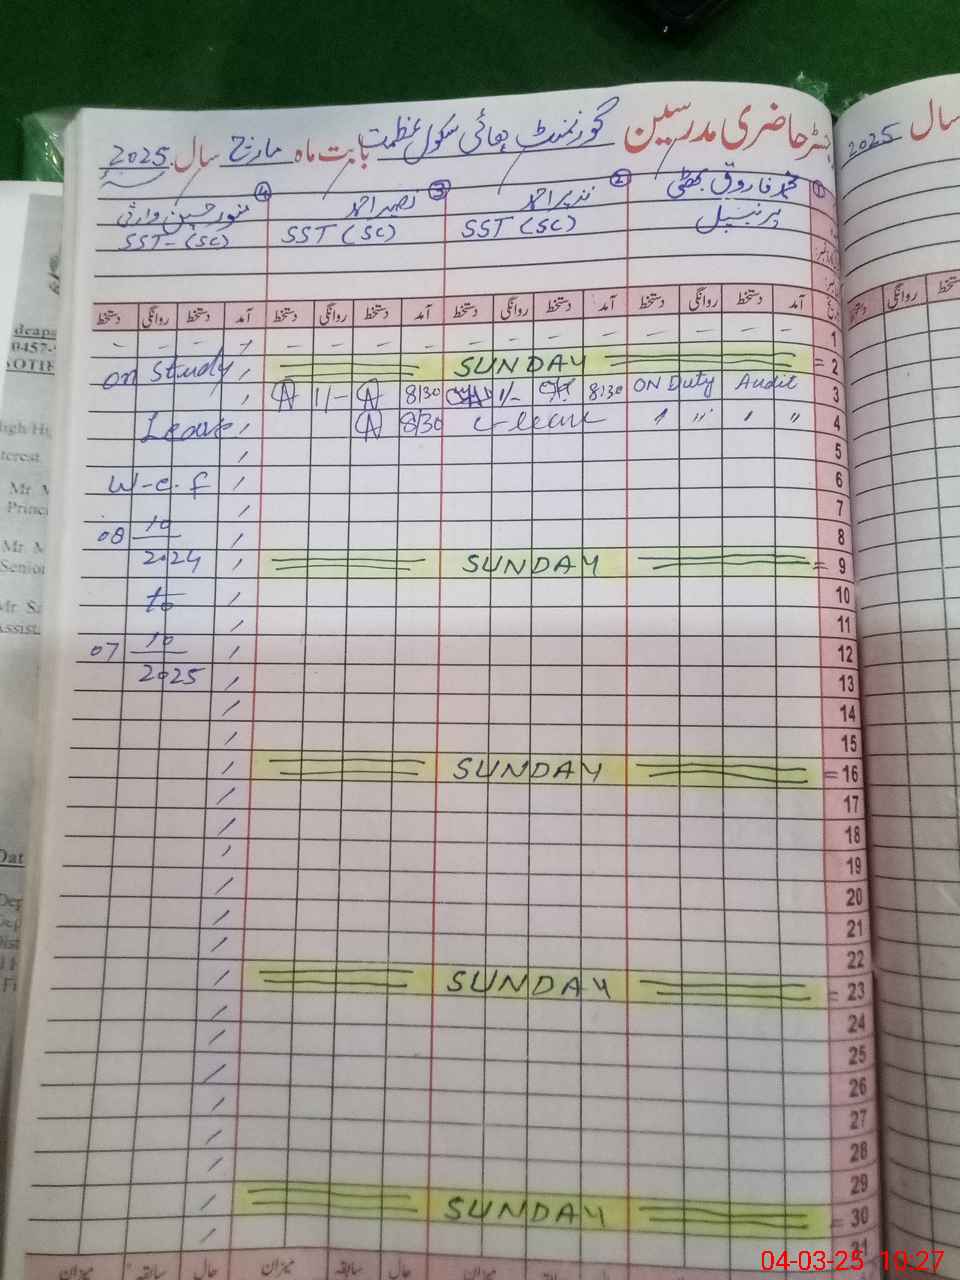 رجسٹر حاضری مدرسین گورنمنٹ ہائی سکول عظمت بابت ماہ مارچ سال 2025
سال 2025
① محمد فاروق بھٹی
پرنسپل
② نذیر احمد
SST (SC)
③ نصیر احمد
SST (SC)
④ منور حسین وارثی
SST-(SC)
آمد دستخط روانگی دستخط آمد دستخط روانگی دستخط آمد دستخط روانگی دستخط آمد دستخط روانگی دستخط
روانگی
1
SUNDAY = 2
on Study
8/30 1/- 8:30 1/- ON Duty Audit 3
Leave 8/30 c-leave 〃 〃 4
5
W-e.f 6
7
08 10 8
2024 SUNDAY = 9
to 10
11
07 10 12
2025 13
14
15
SUNDAY = 16
17
18
19
20
21
22
SUNDAY = 23
24
25
26
27
28
29
SUNDAY = 30
31
حال سابقہ میزان حال سابقہ میزان
0457-
NOTIE
igh H
terest
Mr M
Princ
Mr M
Senior
Mr Sa
Assist
Dat
Dep
Dist
Fi
04-03-25 10:27